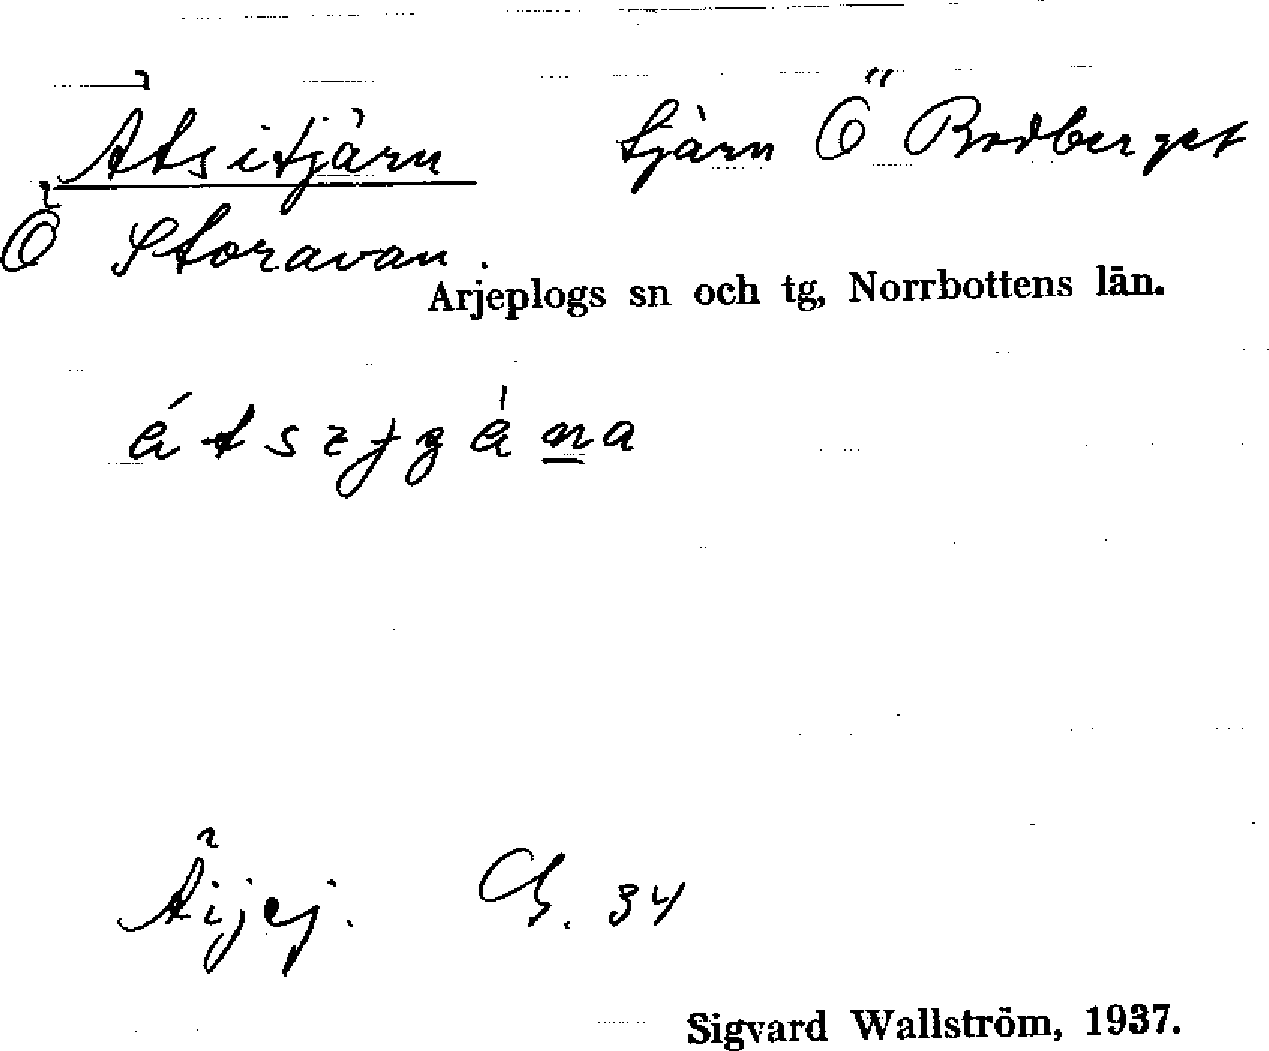 Atsitjärn tjärn Ö Brodberget
Ö Storavan.
Arjeplogs sn och tg, Norrbottens län.
G. 34
Sigvard Wallström, 1937.